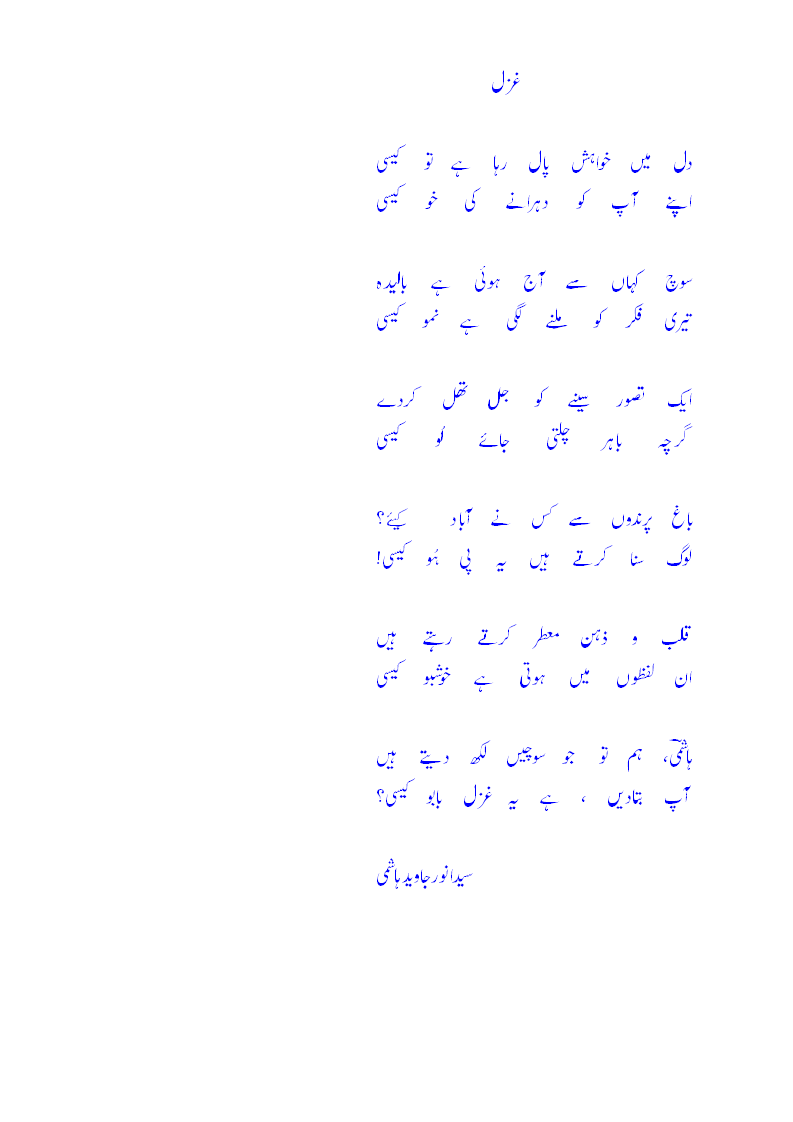 غزل
دل میں خواہش پال رہا ہے تو کیسی
اپنے آپ کو دہرانے کی خو کیسی
سوچ کہاں سے آج ہوئی ہے بالیدہ
تیری فکر کو ملنے لگی ہے نمو کیسی
ایک تصور سینے کو جل تھل کردے
گرچہ باہر چلتی جائے لُو کیسی
باغ پرندوں سے کس نے آباد کیئے؟
لوگ سنا کرتے ہیں یہ پی ہُو کیسی!
قلب و ذہن معطر کرتے رہتے ہیں
ان لفظوں میں ہوتی ہے خوشبو کیسی
ہاشمیؔ، ہم تو جو سوچیں لکھ دیتے ہیں
آپ بتادیں ، ہے یہ غزل بابو کیسی؟
سیدانورجاویدہاشمی